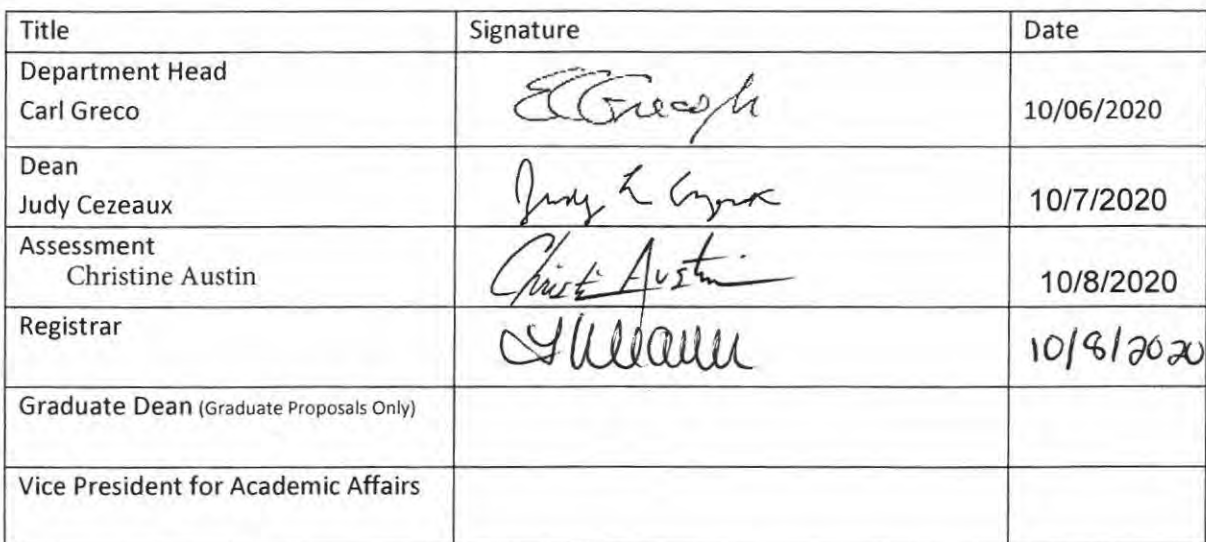 Title Signature Date
Department Head
Carl Greco 10/06/2020
Dean
Judy Cezeaux 10/7/2020
Assessment
Christine Austin Austin 10/8/2020
Registrar 10/8/2020
Graduate Dean (Graduate Proposals Only)
Vice President for Academic Affairs